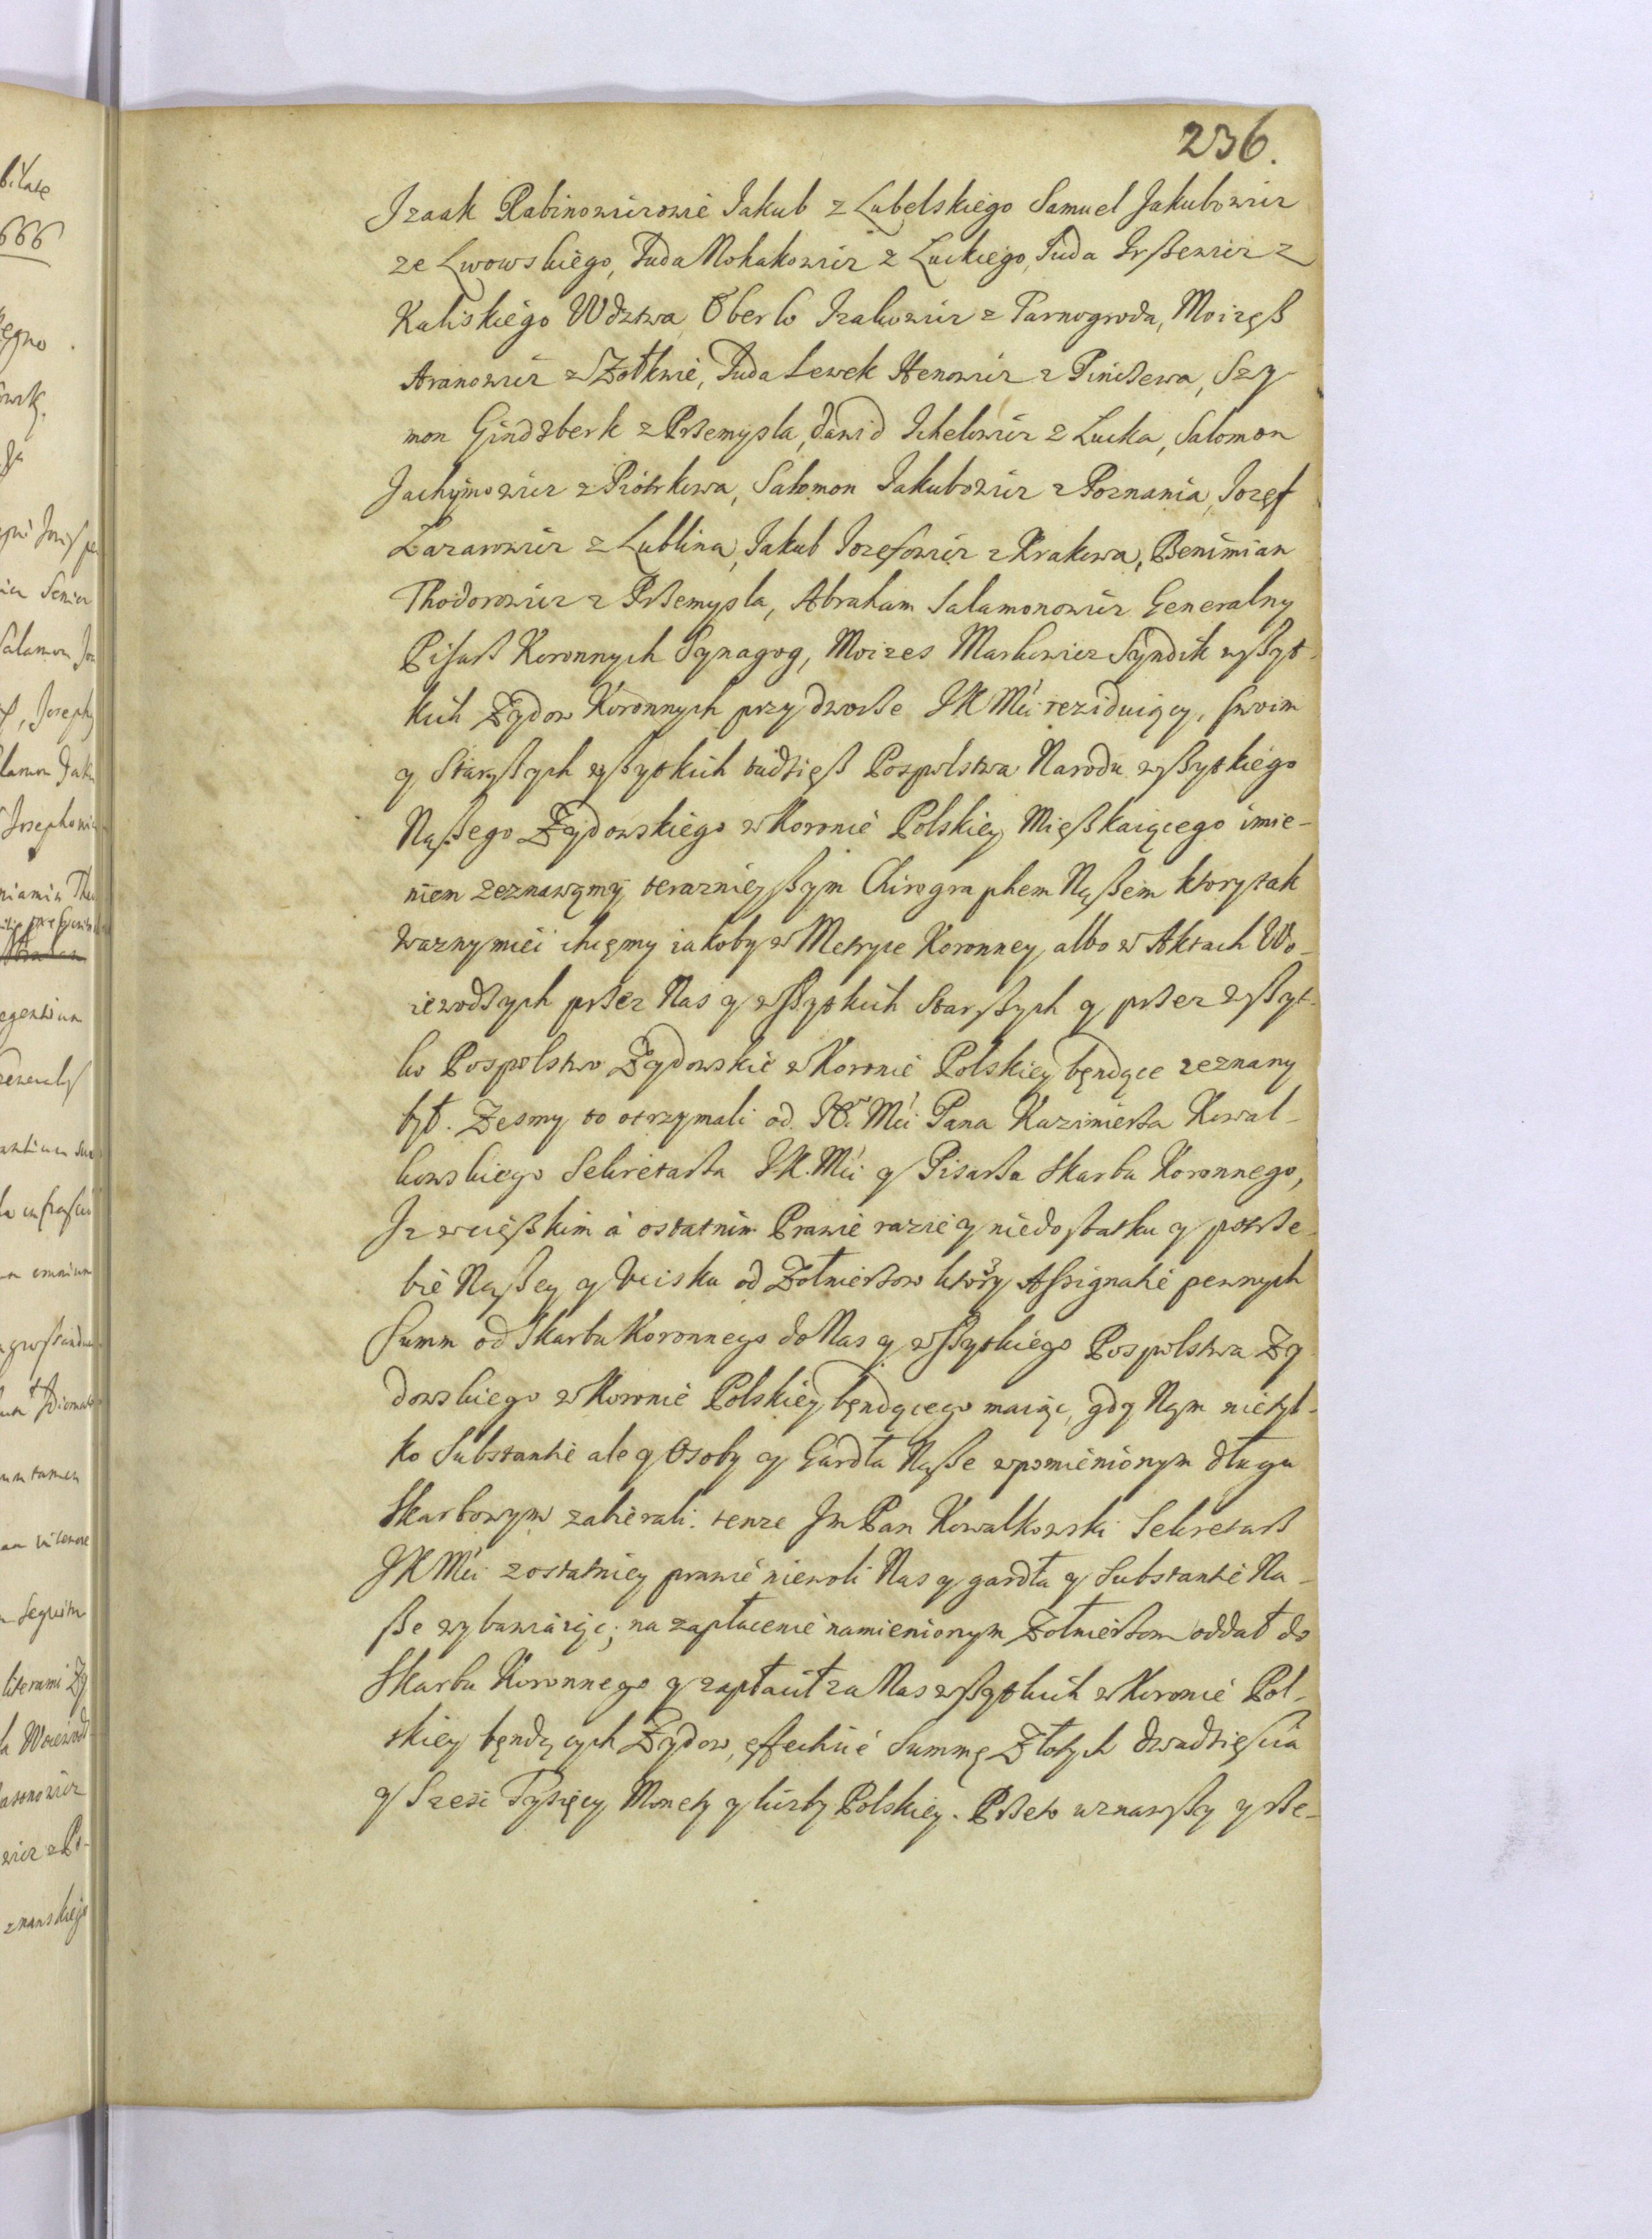 236.
Izaak Rabinowiczowie Jakub z Lubelskiego Samuel Jakubowicz
ze Lwowskiego, Juda Mohakowicz z Łuckiego, Juda Irßewicz z
Kaliskiego Wdztwa Oberko Izakowicz z Tarnogroda, Moizęß
Aranowicz z Żołkwie, Juda Lewek Henowicz z Pinczewa, Szy-
mon Gindzberk z Przemysla, Dawid Ichelowicz z Łucka, Salomon
Jachymowicz z Piotrkowa, Salomon Jakubowicz z Poznania, Jozef
Lazarowicz z Lublina, Jakub Jozefowicz z Krakowa, Benimian
Thodorowicz z Przemysla, Abraham Salamonowicz Generalny
Pisarz Koronnych Synagog, Moizes Markowicz Syndik wßyt-
kich Zydow Koronnych przy dworze JKMci reziduiący, swoim
y Starßych wßytkich tudzięß Pospolstwa Narodu wßytkiego
Naßego Zydowskiego w Koronie Polskiey Mięßkaiącego imie-
niem zeznawamy terazniejßym Chirographem Naßem ktory tak
wazny mieci chcęmy iakoby w Metryce Koronney, albo w Aktach Wo-
iewodzych przez Nas y wßytkich Starßych y przez wßyt-
ko Pospolstwo Zydowskie w Koronie Polskiey będące zeznany
był. Zesmy to otrzymali od Mci Pana Kazimierza Kowal-
kowskiego Sekretarza JK. Mci y Pisarza Skarbu Koronnego,
Iz w cięßkim a ostatnim Prawie razie y niedostatku y potrze-
bie Naßey y Ucisku od Zołnierzow ktorzy Assignatie pewnych
Summ od Skarbu Koronnego do Nas y wßytkiego Pospolstwa Zy
dowskiego w Koronie Polskiey będącego maiąc, gdy Nam nietyl-
ko Substantie ale y Osoby y Gardła Naße wpomienionym długu
Skarbowym zabierali. tenze Jm Pan Kowalkowski Sekretarz
JKMci z ostatniey prawie niewoli Nas y gardła y Substantie Na-
ße wybawiaiąc, na zapłacenie namienionym Zołnierzom oddał do
Skarbu Koronnego y zapłacił za Nas wßytkich w Koronie Pol-
skiey będących Zydow, effectiue Summę Złotych dwadzięscia
y Szesc Tysięcy Monety y liczby Polskiey. Przeto uznawßy y rze-